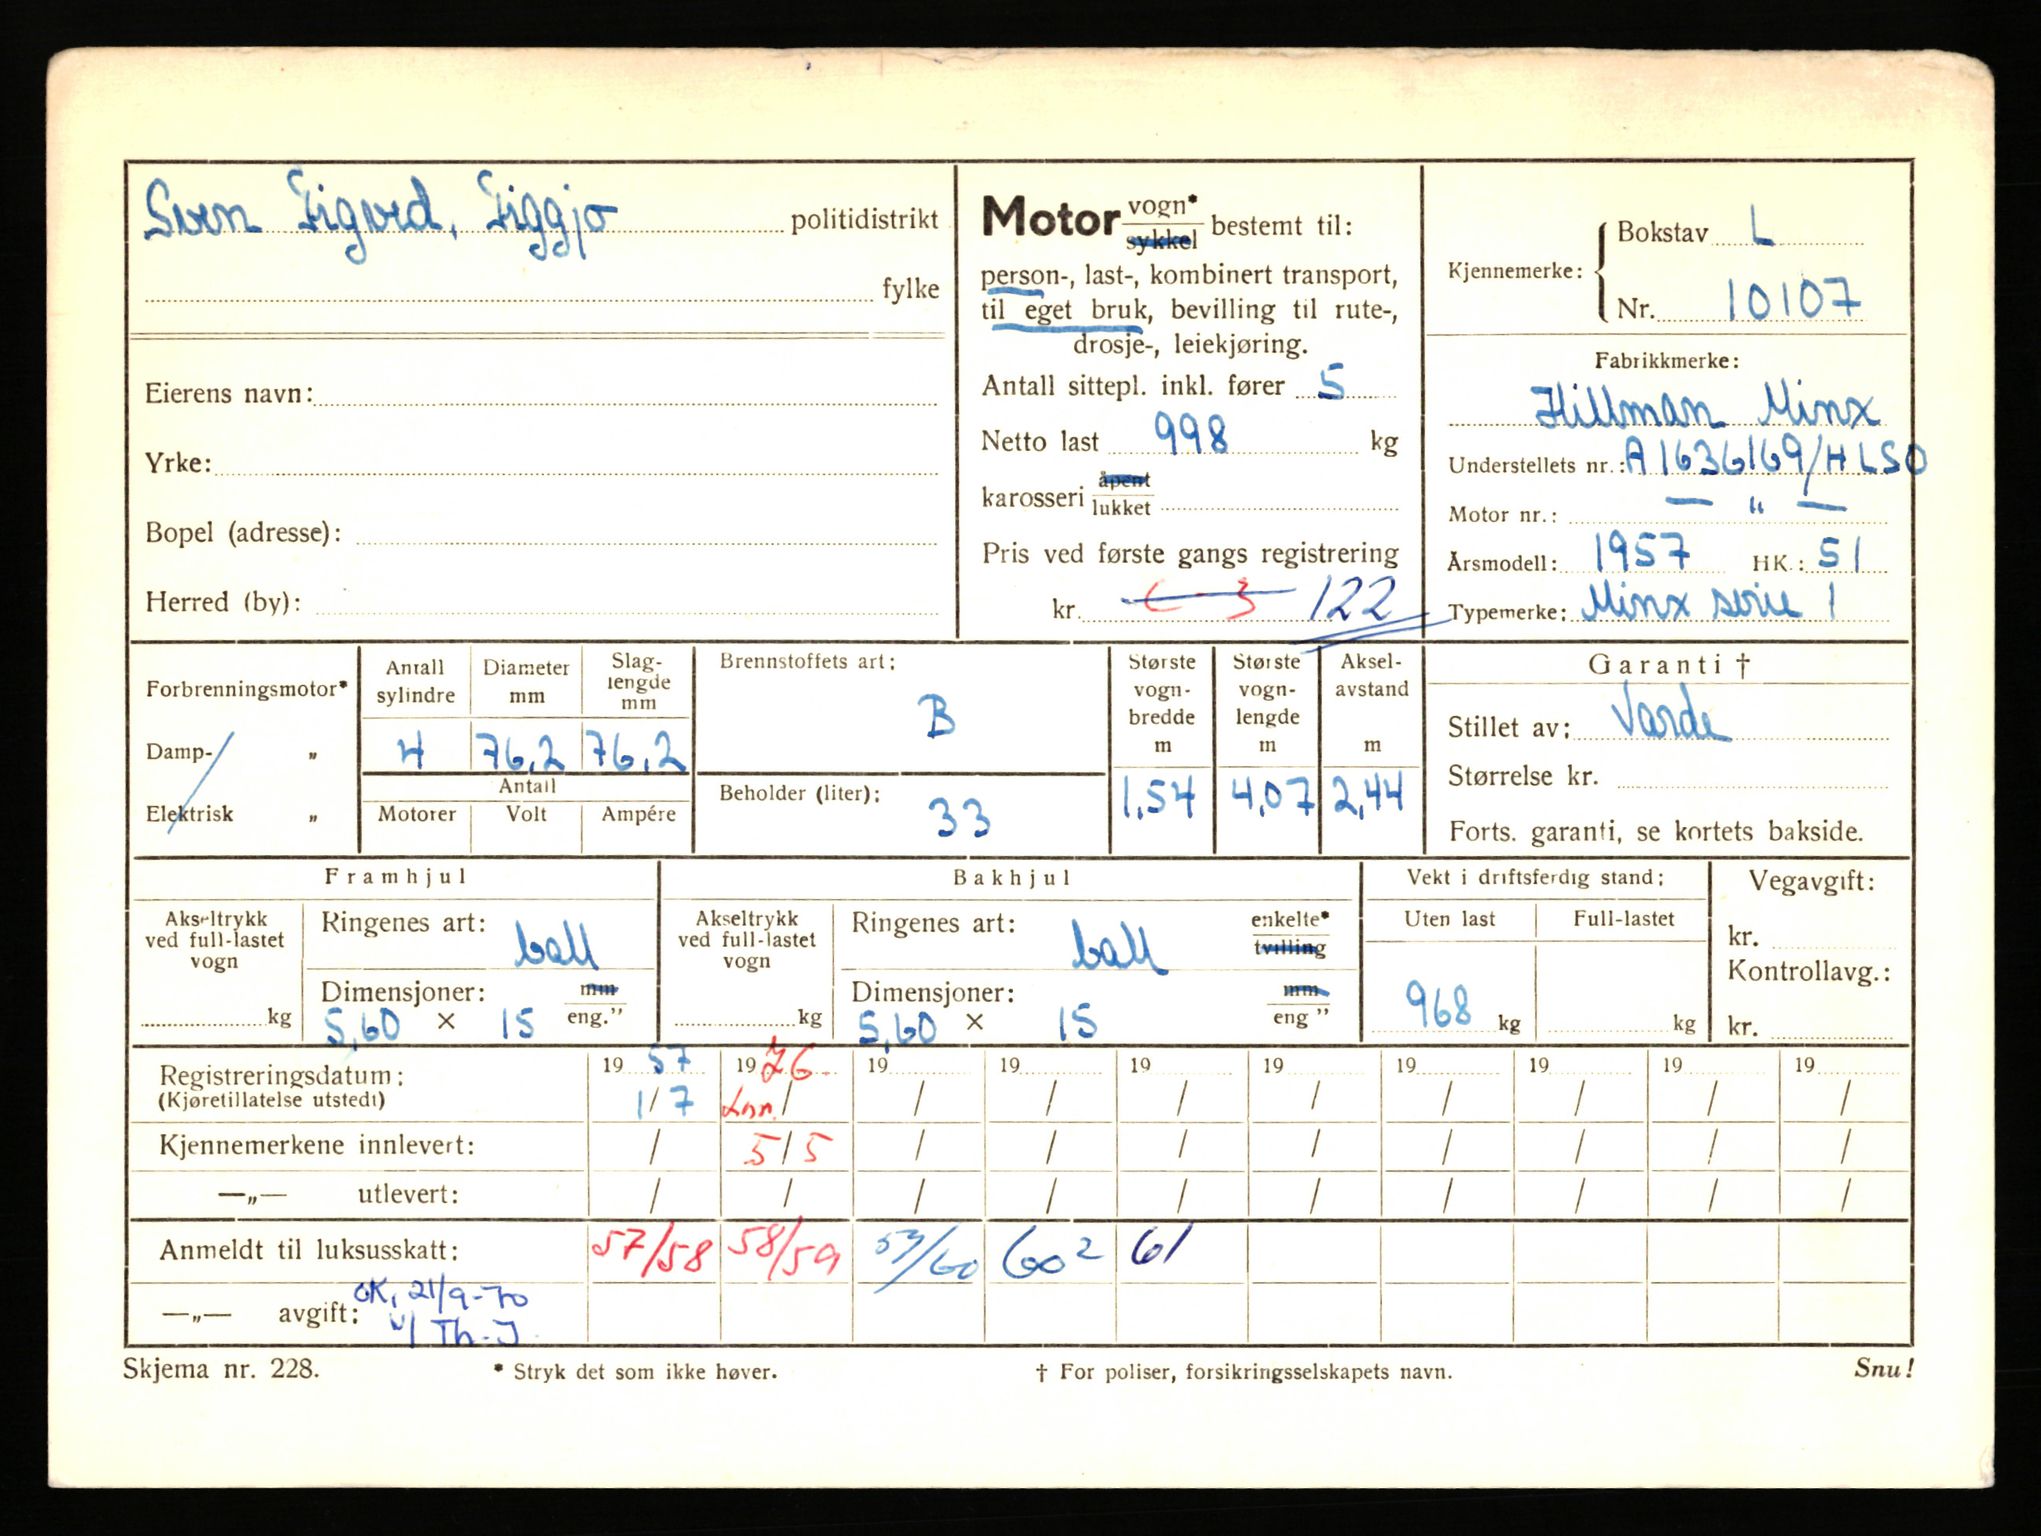 Sven Sigved, Figgjo politidistrikt
fylke
Eierens navn:
Yrke:
Bopel (adresse):
Herred (by):
Motor vogn* sykkel bestemt til:
person-, last-, kombinert transport,
til eget bruk, bevilling til rute-,
drosje-, leiekjøring.
Antall sittepl. inkl. fører 5
Netto last 998 kg
karosseri åpent lukket
Pris ved første gangs registrering
kr. 122
Kjennemerke: Bokstav L
Nr. 10107
Fabrikkmerke:
Hillman Minx
Understellets nr.: A1636169/HLSO
Motor nr.: — " —
Årsmodell: 1957 HK.: 51
Typemerke: Minx serie 1
Forbrenningsmotor*
Damp- „
Elektrisk „
Antall sylindre
4
Diameter mm
76,2
Slaglengde mm
76,2
Antall
Motorer Volt Ampére
Brennstoffets art:
B
Beholder (liter):
33
Største vogn-bredde m
1,54
Største vogn-lengde m
4,07
Aksel-avstand m
2,44
Garanti †
Stillet av: Varde
Størrelse kr.
Forts. garanti, se kortets bakside.
Framhjul
Akseltrykk
ved full-lastet
vogn
kg
Ringenes art: ball
Dimensjoner: mm
5,60 × 15 eng.”
Bakhjul
Akseltrykk
ved full-lastet
vogn
kg
Ringenes art: ball enkelte* tvilling
Dimensjoner: mm
5,60 × 15 eng ”
Vekt i driftsferdig stand:
Uten last Full-lastet
968 kg kg
Vegavgift:
kr.
Kontrollavg.:
kr.
Registreringsdatum: 19 57 19 76 19 19 19 19 19 19 19 19
(Kjøretillatelse utstedt) 1/7 / / / / / / / / /
Kjennemerkene innlevert: / 5/5 / / / / / / / /
—„— utlevert: / / / / / / / / / /
Anmeldt til luksusskatt: 57/58 58/59 59/60 60² 61
—„— avgift: OK, 21/9-70
v/ Th-J
Skjema nr. 228. * Stryk det som ikke høver. † For poliser, forsikringsselskapets navn. Snu!